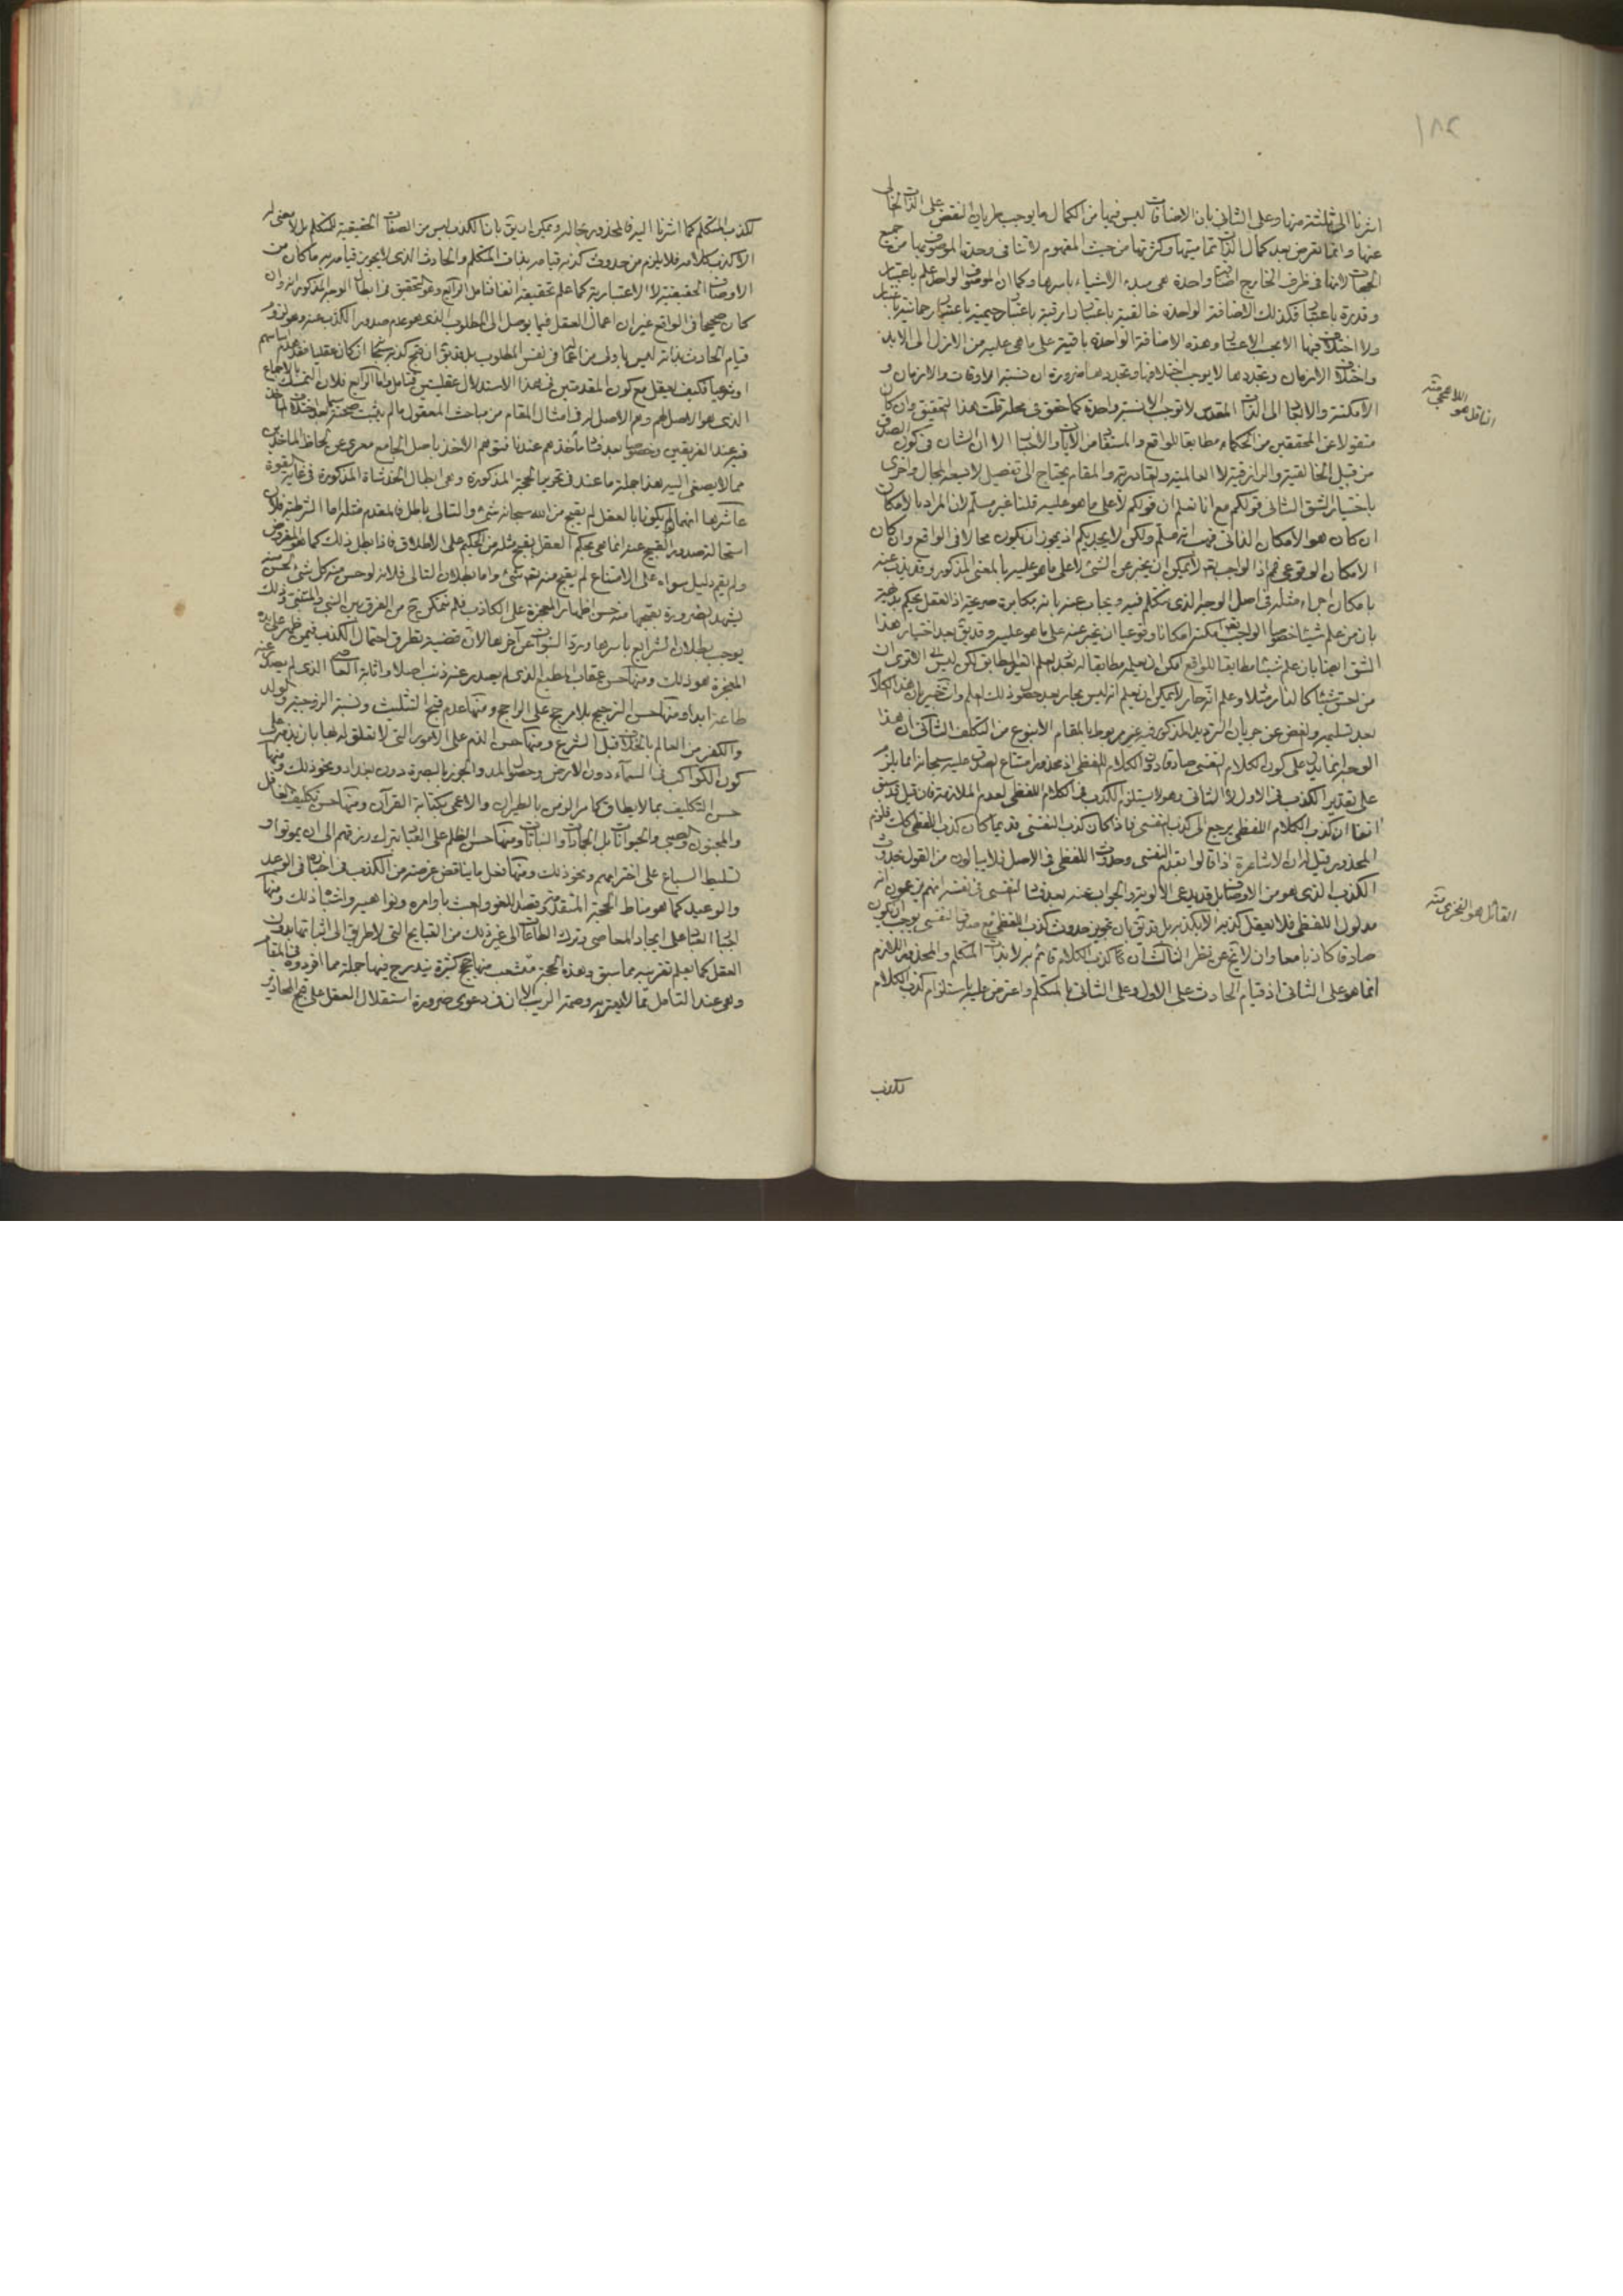 ١٨٢
اشرنا الى ثلثة منها وعلى الثانى بان الاضافات ليس فيها من الكمال ما يوجب طريان النقص على الذات الخالى
عنها وانما تعرض بعد كمال الذات تماميتها وكثرتها من حيث المفهوم لا تنافى وحدة الموصوف بها من جميع
الجهات لانها فى ظرف الخارج اضافة واحدة هى مبدء الاشياء باسرها وكما ان الموصوف الواحد علم باعتبار
وقدرة باعتبار فكذلك الاضافة الواحدة خالقية باعتبار رازقية باعتبار رحيمية باعتبار رحمانية باعتبار
ولا اختلاف فيها الا بحسب الاعتبار وهذه الاضافة الواحدة باقية على ما هى عليه من الازل الى الابد
واختلاف الازمان وتجددها لا يوجب اختلافها وتجددها ضرورة ان نسبة الاوقات والازمان و
الامكنة والاشياء الى الذات المقدس لا توجب الا نسبة واحدة كما حقق فى محله قلت هذا التحقيق وان كان
منقولا عن المحققين من الحكماء مطابقا للواقع والمستفاد من الآيات والاخبار الا ان الشان فى كون الصدق
من قبيل الخالقية والرازقية لا العالمية والقادرية والمقام يحتاج الى تفصيل لا يسعه المجال واخرى
باختيار الشق الثانى قولكم مع انا نعلم ان قولكم لا على ما هو عليه قلنا غير مسلم لان المراد بالامكان
ان كان هو الامكان الذاتى فهب انه مسلم ولكن لا يجديكم اذ يجوز ان يكون محالا فى الواقع وان كان
الامكان الوقوعى فح اذ الواجب تع لا يمكن ان يخبر عن الشئ لا على ما هو عليه بالمعنى المذكور وقد يذب عنه
بامكان اجراء مثله فى اصل الوجه الذى نتكلم فيه ويجاب عنه بانه مكابرة صريحة اذ العقل يحكم بديهة
بان من علم شيئا خصوصا الواجب تعالى يمكنه امكانا وقوعيا ان يخبر عنه على ما هو عليه وقد يق بعد اختيار هذا
الشق ايضا بان علم شيئا مطابقا للواقع امكن ان يعلم مطابقا له بعد العلم المطابق لكن ليس الاقوى ان
من احسن شيئا كالنار مثلا وعلم انه حار لا يمكن ان يعلم انه ليس بحار بعد حصول ذلك العلم وانت خبير بان هذا الكلام
بعد تسليمه والغض عن جريان الترديد المذكور فيه غير مربوط بالمقام الا بنوع من التكلف الثالث ان هذا
الوجه انما يدل على كون الكلام النفسى صادقا دون الكلام اللفظى اذ محذور امتناع الصدق عليه سبحانه انما يلزم
على تقدير الكذب فى الاول لا الثانى وهو لا يستلزم الكذب فى الكلام اللفظى لعدم الملازمة فان قيل قد سبق
انفا ان كذب الكلام اللفظى يرجع الى كذب النفسى فاذا كان كذب النفسى قديما كان كذب اللفظى كك فلزم
المحذور قيل له ان الاشاعرة اذا قالوا بقدم النفسى وحدوث اللفظى فى الاصل فلا يبالون من القول بحدوث
الكذب الذى هو من الاوصاف بل قد يدعى الاولوية والجواب عنه بعد فساد النفسى فى نفسه انهم يزعمون انه
مدلول اللفظى فلا يعقل كذبه الا بكذبه بل قد يق بان تجويز حدوث كذب اللفظى مع صدق النفسى يوجب ان يكون
صادقا كاذبا معا وان لا يخ عن نظر الثالث ان كذب الكلام قائم به لا بذات المتكلم والمحذور اللازم
انما هو على الثانى اذ قيام الحادث على الاول وعلى الثانى بالمتكلم واعترض عليه باستلزام كذب الكلام
لكذب
الناقل هو
اللاهيجى منه
القائل هو الفخرى منه
لكذب المتكلم كما اشرنا اليه فالمحذور بحاله ويمكن ان يق بان الكذب ليس من الصفات الحقيقية للمتكلم بل لا معنى له
الا كذب كلامه فلا يلزم من حدوث كذبه قيامه بذات المتكلم والحادث الذى لا يجوز قيامه به ما كان من
الاوصاف الحقيقية لا الاعتبارية كما علم تحقيقه انفا فتامل الرابع وهو التحقيق فى ابطال الوجه المذكور انه وان
كان صحيحا فى الواقع غير ان اعمال العقل فيما يوصل الى المطلوب الذى هو عدم صدور الكذب عنه وهو لزوم
قيام الحادث بذاته ليس باولى من اعماله فى نفس المطلوب بل قد يق ان قبح كذبه سبحانه ان كان عقليا فقد علم باسم
او شرعيا فكيف يعقل مع كون المقدمتين فى هذا الاستدلال عقليتين فتامل واما الرابع فلان التمسك بالاجماع
الذى هو الاصل لهم وهم الاصل له فى امثال المقام من مباحث المعقول ما لم يثبت صحته سيما بعد اختلاف الماخذ
فيه عند الفريقين وخصوصا بعد فساد ماخذهم عندنا فتوهم الاخذ باصل الجامع معرى عن لحاظ الماخذين
مما لا يصغى اليه هذا جملة ما عندى فى تحرير الحجة المذكورة وهى ابطال الخدشات المذكورة فى غاية القوة
عاشرها انهما لو لم يكونا بالعقل لم يقبح من الله سبحانه شئ والتالى باطل فالمقدم مثله اما الشرطية فلان
استحالة صدور القبيح عنه انما هى بحكم العقل بقبح مثله من الحكيم على الاطلاق فاذا بطل ذلك كما هو المفروض
ولم يقم دليل سواه على الامتناع لم يقبح منه تع شئ واما بطلان التالى فلانه لو حسن منه كل شئ لحسن منه
يشهد الضرورة بقبحها منه حسن اظهار المعجزة على الكاذب فلم نتمكن ح من الفرق بين النبى والمتنبى وذلك
يوجب بطلان الشرايع باسرها ورد النبوات عن آخرها لان قضيته تطرق احتمال الكذب فيمن ظهر على يده
المعجزة هو ذلك ومنها حسن عقاب المطيع الذى لم يصدر عنه ذنب اصلا واثابة العاصى الذى لم يصدر عنه
طاعة ابدا ومنها حسن الترجيح بلا مرجح على الراجح ومنها عدم قبح التثليث ونسبة الزوجية والولد
والكفر من العالم بالخلاف قبل الشرع ومنها حسن الذم على الامور التى لا تتعلق له بها بان يذم على
كون الكواكب فى السماء دون الارض وحصول المد والجزر بالبصرة دون بغداد ونحو ذلك ومنها
حسن التكليف بما لا يطاق كامر الزمن بالطيران والاعمى بكتابة القرآن ومنها حسن تكليف الغافل
والمجنون والصبى والحيوانات بل الجمادات والنباتات ومنها حسن الظلم على العباد بترك رزقهم الى ان يموتوا و
تسليط السباع على اخترامهم ونحو ذلك ومنها فعل ما يناقض غرضه من الكذب فى اخباره فى الوعد
والوعيد كما هو مناط الحجة المتقدمة وقصد اللغو والعبث باوامره ونواهيه واشباه ذلك ومنها
اجبار العباد على ايجاد المعاصى وترك الطاعات الى غير ذلك من القبايح التى لا طريق الى اثباتها بدون
العقل كما يعلم تقريبه مما سبق وهذه الحجة متشعب منها حجج كثيرة يندرج فيها جملة مما افردوه فى المقام
وهى عند التامل مما لا يعتريه وصمة الريب الا ان فى دعوى ضرورة استقلال العقل على قبح المحاذير